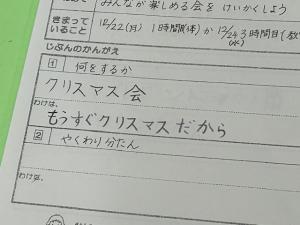 みんなが楽しめる会をけいかくしよう
きまって
いること
12/22(月) 1時間目(体) か 12/24 3時間目(
(水)
じぶんのかんがえ
1 何をするか
クリスマス会
わけは、
もうすぐクリスマスだから
2 やくわり分たん
わけは、